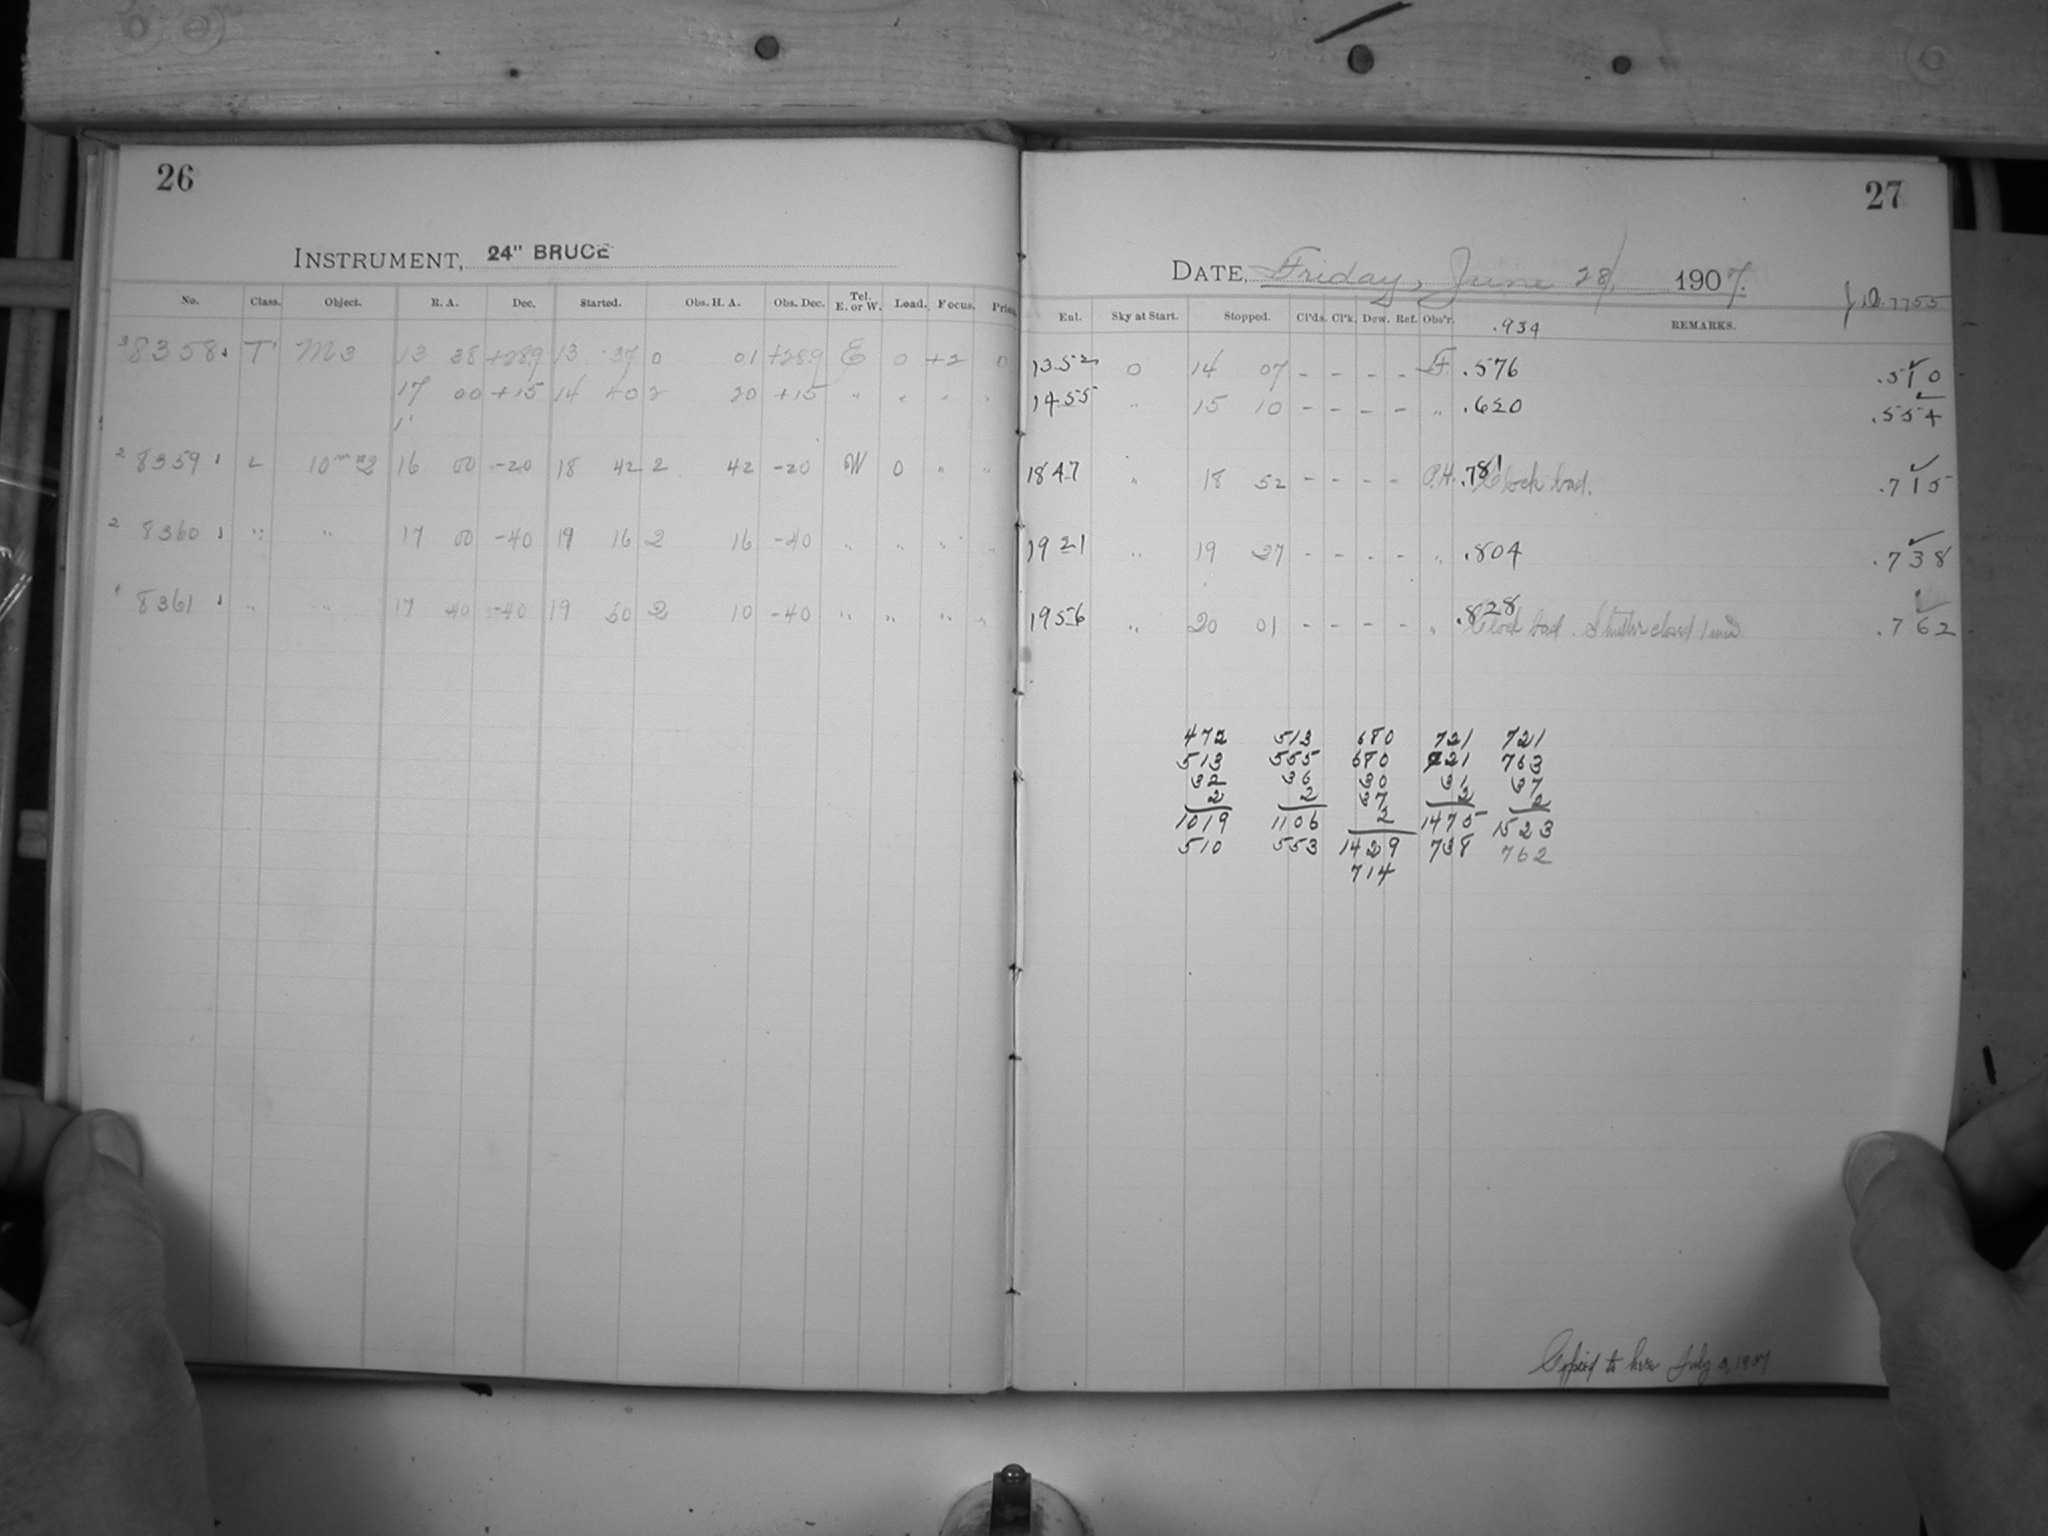 26
INSTRUMENT, 24" BRUCE
No. Class. Object. R. A. Dec. Started. Obs. H. A. Obs. Dec. Tel. E. or W. Load. Focus. Prism.
3 8358 T M3 13 38 +28.9 13 37 0 01 +28.9 E 0 +2 0
17 00 +15 14 40 2 20 +15 " " " "
2 8359 L 10m 2 16 00 -20 18 42 2 42 -20 W 0 " "
2 8360 " " 17 00 -40 19 16 2 16 -40 " " " "
8361 " " 17 40 -40 19 50 2 10 -40 " " " "
27
DATE, Friday, June 28, 1907.
J.D. 7755
Enl. Sky at Start. Stopped. Cl'ds. Cl'k. Dew. Ref. Obs'r. .934 REMARKS.
13 52 0 14 07 - - - - .576 .510
14 55 " 15 10 - - - - " .620 .554
18 47 " 18 52 - - - - P.H. .781 Clock bad. .715
19 21 " 19 27 - - - - " .804 .738
19 56 " 20 01 - - - - " .828 Clock bad. Shutter closed 1 min .762
472 513 680 721 721
513 555 680 721 763
32 36 30 31 37
2 2 37 2 2
1019 1106 2 1475 1523
510 553 1429 738 762
714
Copied to here July 3, 1907